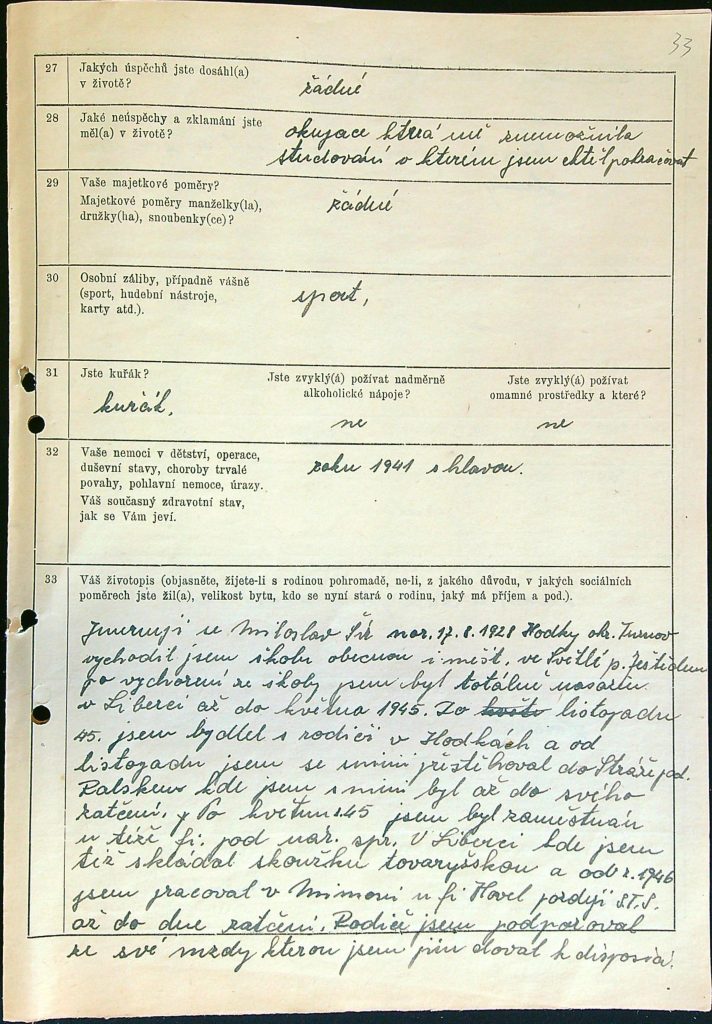 33
27 Jakých úspěchů jste dosáhl(a)
v životě?
žádné
28 Jaké neúspěchy a zklamání jste
měl(a) v životě?
okupace která mě znemožnila
studování v kterém jsem chtěl pokračovat
29 Vaše majetkové poměry?
Majetkové poměry manželky(la),
družky(ha), snoubenky(ce)?
žádné
30 Osobní záliby, případně vášně
(sport, hudební nástroje,
karty atd.).
sport,
31 Jste kuřák?
kuřák.
Jste zvyklý(á) požívat nadměrně
alkoholické nápoje?
ne
Jste zvyklý(á) požívat
omamné prostředky a které?
ne
32 Vaše nemoci v dětství, operace,
duševní stavy, choroby trvalé
povahy, pohlavní nemoce, úrazy.
Váš současný zdravotní stav,
jak se Vám jeví.
roku 1941 s hlavou.
33 Váš životopis (objasněte, žijete-li s rodinou pohromadě, ne-li, z jakého důvodu, v jakých sociálních
poměrech jste žil(a), velikost bytu, kdo se nyní stará o rodinu, jaký má příjem a pod.).
Jmenuji se Miloslav Šír nar. 17. 8. 1928 Hodky okr. Turnov
vychodil jsem školu obecnou i měšt. ve Světlé p. Ještědem
po vychození ze školy jsem byl totálně nasazen
v Liberci až do května 1945. Do listopadu
45. jsem bydlel s rodiči v Hodkách a od
listopadu jsem se s nimi přestěhoval do Stráže pod.
Ralskem kde jsem s nimi byl až do svého
zatčení. Po květnu 45 jsem byl zaměstnán
u téže fi. pod nár. spr. V Liberci kde jsem
též skládal zkoužku tovaryšskou a od r. 1946
jsem pracoval v Mimoni u fi Havel později S.T.S.
až do dne zatčení. Rodiče jsem podporoval
ze své mzdy kterou jsem jim dával k disposici.